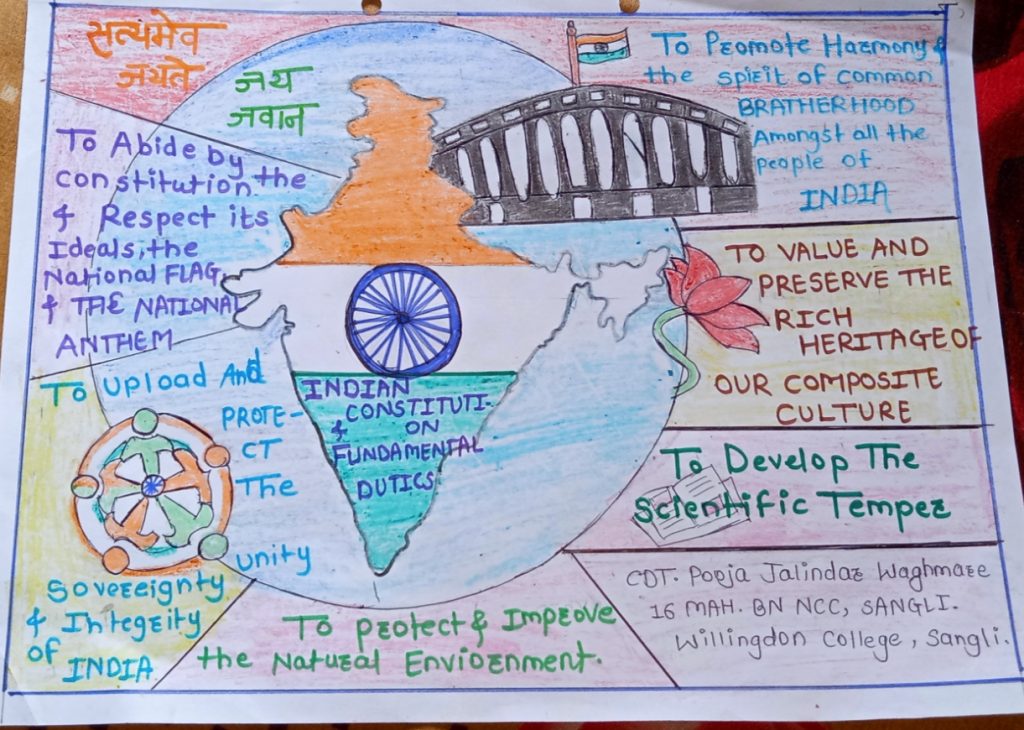 सत्यमेव
जयते
जय
जवान
To Promote Harmony &
the spirit of common
BRATHERHOOD
Amongst all the
people of
INDIA
To Abide by
constitution the
& Respect its
Ideals, the
National FLAG,
& THE NATIONAL
ANTHEM
TO VALUE AND
PRESERVE THE
RICH
HERITAGE OF
OUR COMPOSITE
CULTURE
INDIAN
CONSTITUTI-
& ON
FUNDAMENTAL
DUTICS
To Upload And
PROTE-
CT
The
unity
Sovereignty
& Integrity
of INDIA
To Develop The
Scientific Temper
To protect & Improve
the Natural Enviornment.
CDT. Pooja Jalindar Waghmare
16 MAH. BN NCC, SANGLI.
Willingdon College, Sangli.